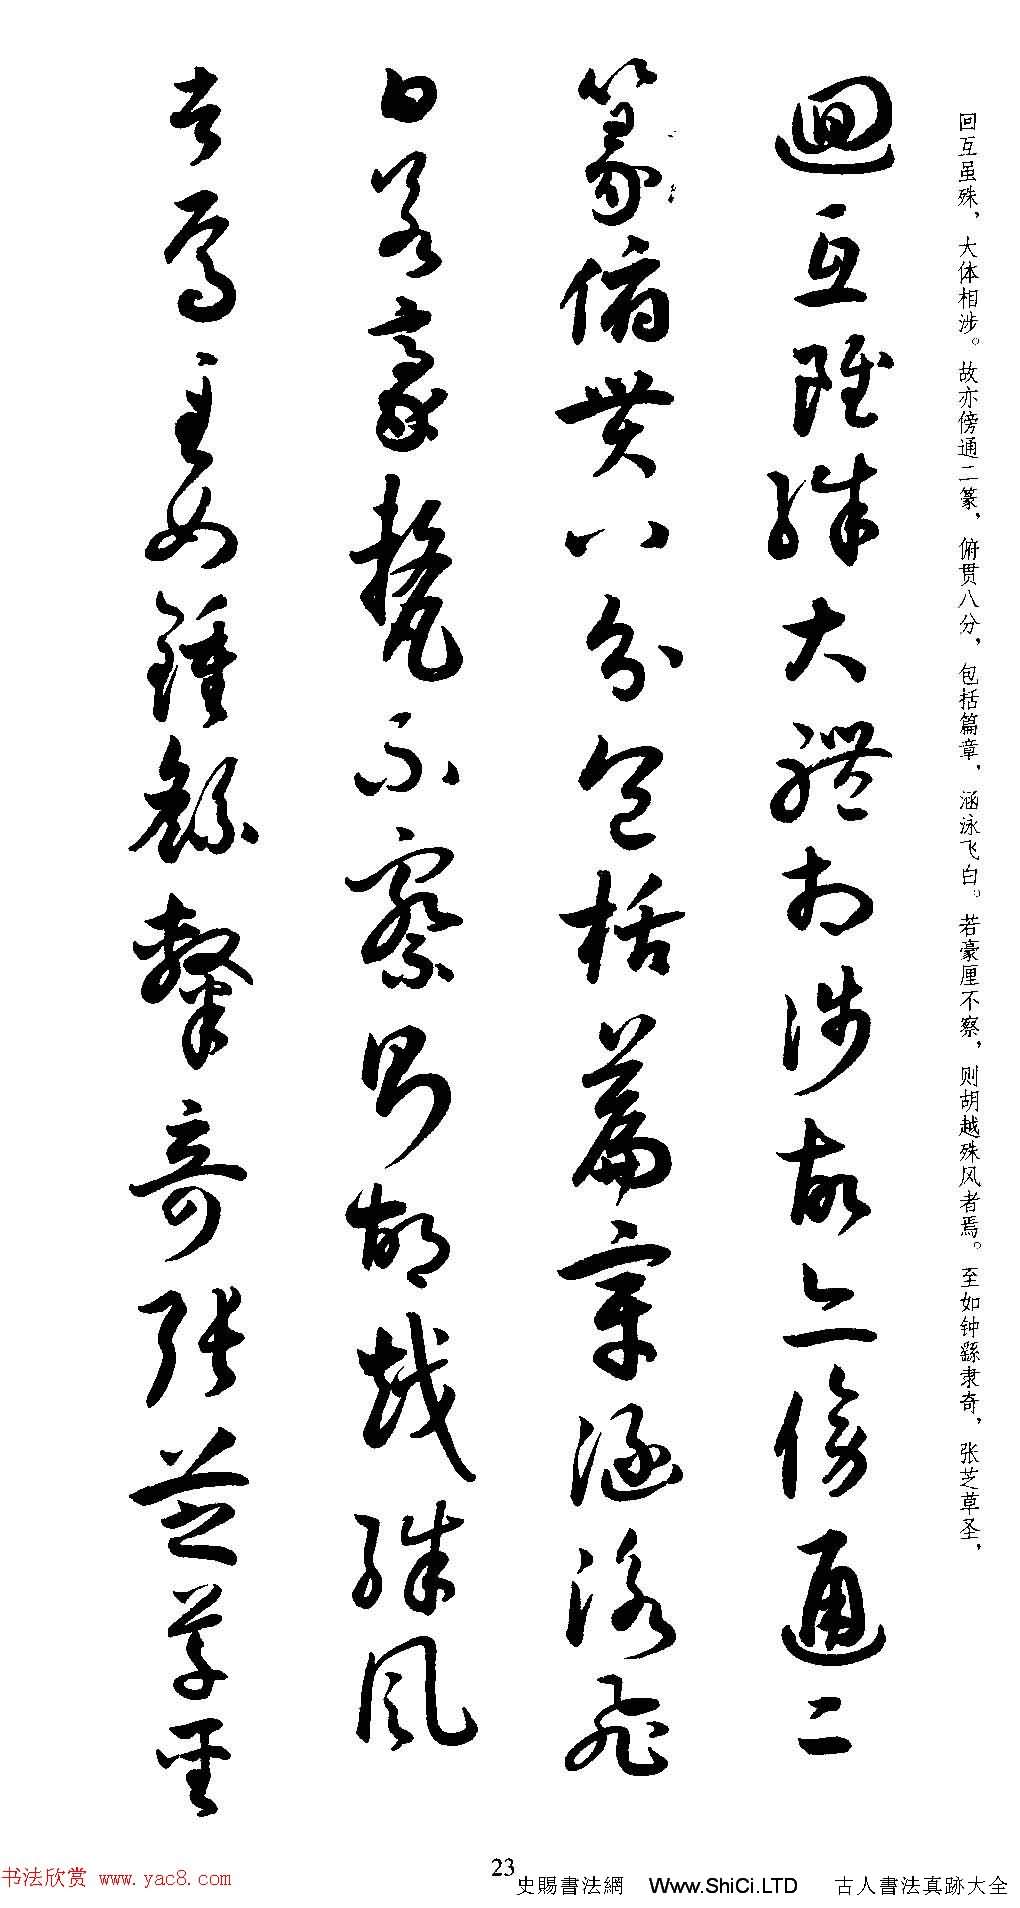 回互虽殊，大体相涉。故亦傍通二篆，俯贯八分，包括篇章，涵泳飞白。若豪厘不察，则胡越殊风者焉。至如钟繇隶奇，张芝草圣，
迴互雖殊大體相涉故亦傍通二
篆俯貫八分包括篇章涵泳飛
白若豪氂不察則胡越殊風
者焉至如鍾繇隸奇張芝草聖
23
书法欣赏 www.yac8.com
史賜書法網 Www.ShiCi.LTD 古人書法真跡大全